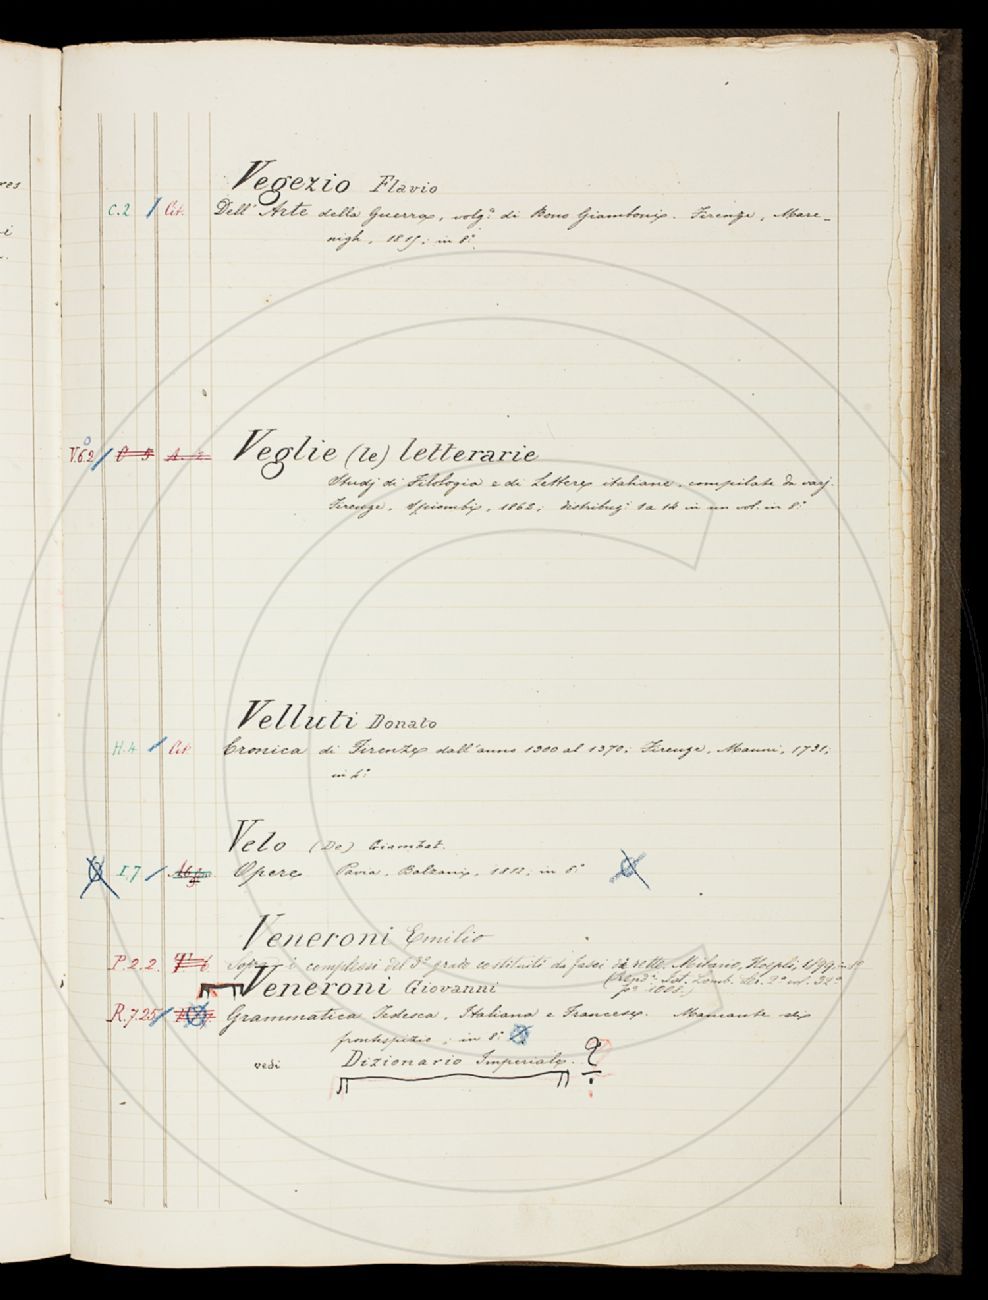 res
i
Vegezio Flavio
C.2 / Cit. Dell' Arte della Guerra, volg.e di Bono Giamboni. Firenze, Mare-
nigh, 1815; in 8°.
V.6.2 / Veglie (le) letterarie
Studj di Filologia e di Lettere italiane, compilate da varj.
Firenze, Spiombi, 1862; distribuz.i 1 a 14 in un vol. in 8.°
Velluti Donato
H.4 / Cit. Cronica di Firenze dall'anno 1300 al 1370; Firenze, Manni, 1731;
in 4.°
Velo (De) Giambat.
I.7 / Opere Pavia, Bolzani, 1812, in 8.°
Veneroni Emilio
P.2.2. Sopra i complessi del 3° grado costituiti da fasci di rette. Milano, Hoepli, 1899, in 8°
(Rend.i Ist. Lomb. Sr. 2a vol. 32°
Veneroni Giovanni
R.7.25 / Grammatica Tedesca, Italiana e Francese. Mancante del
frontespizio; in 8.°
vedi Dizionario Imperiale. ?